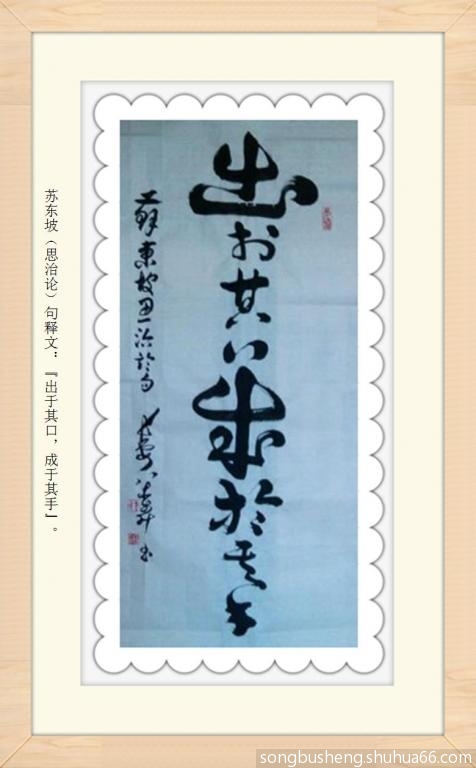 出於其口成於其手
蘇東坡思治論句
苏东坡（思治论）句释文：『出于其口，成于其手』。
songbusheng.shuhua66.com